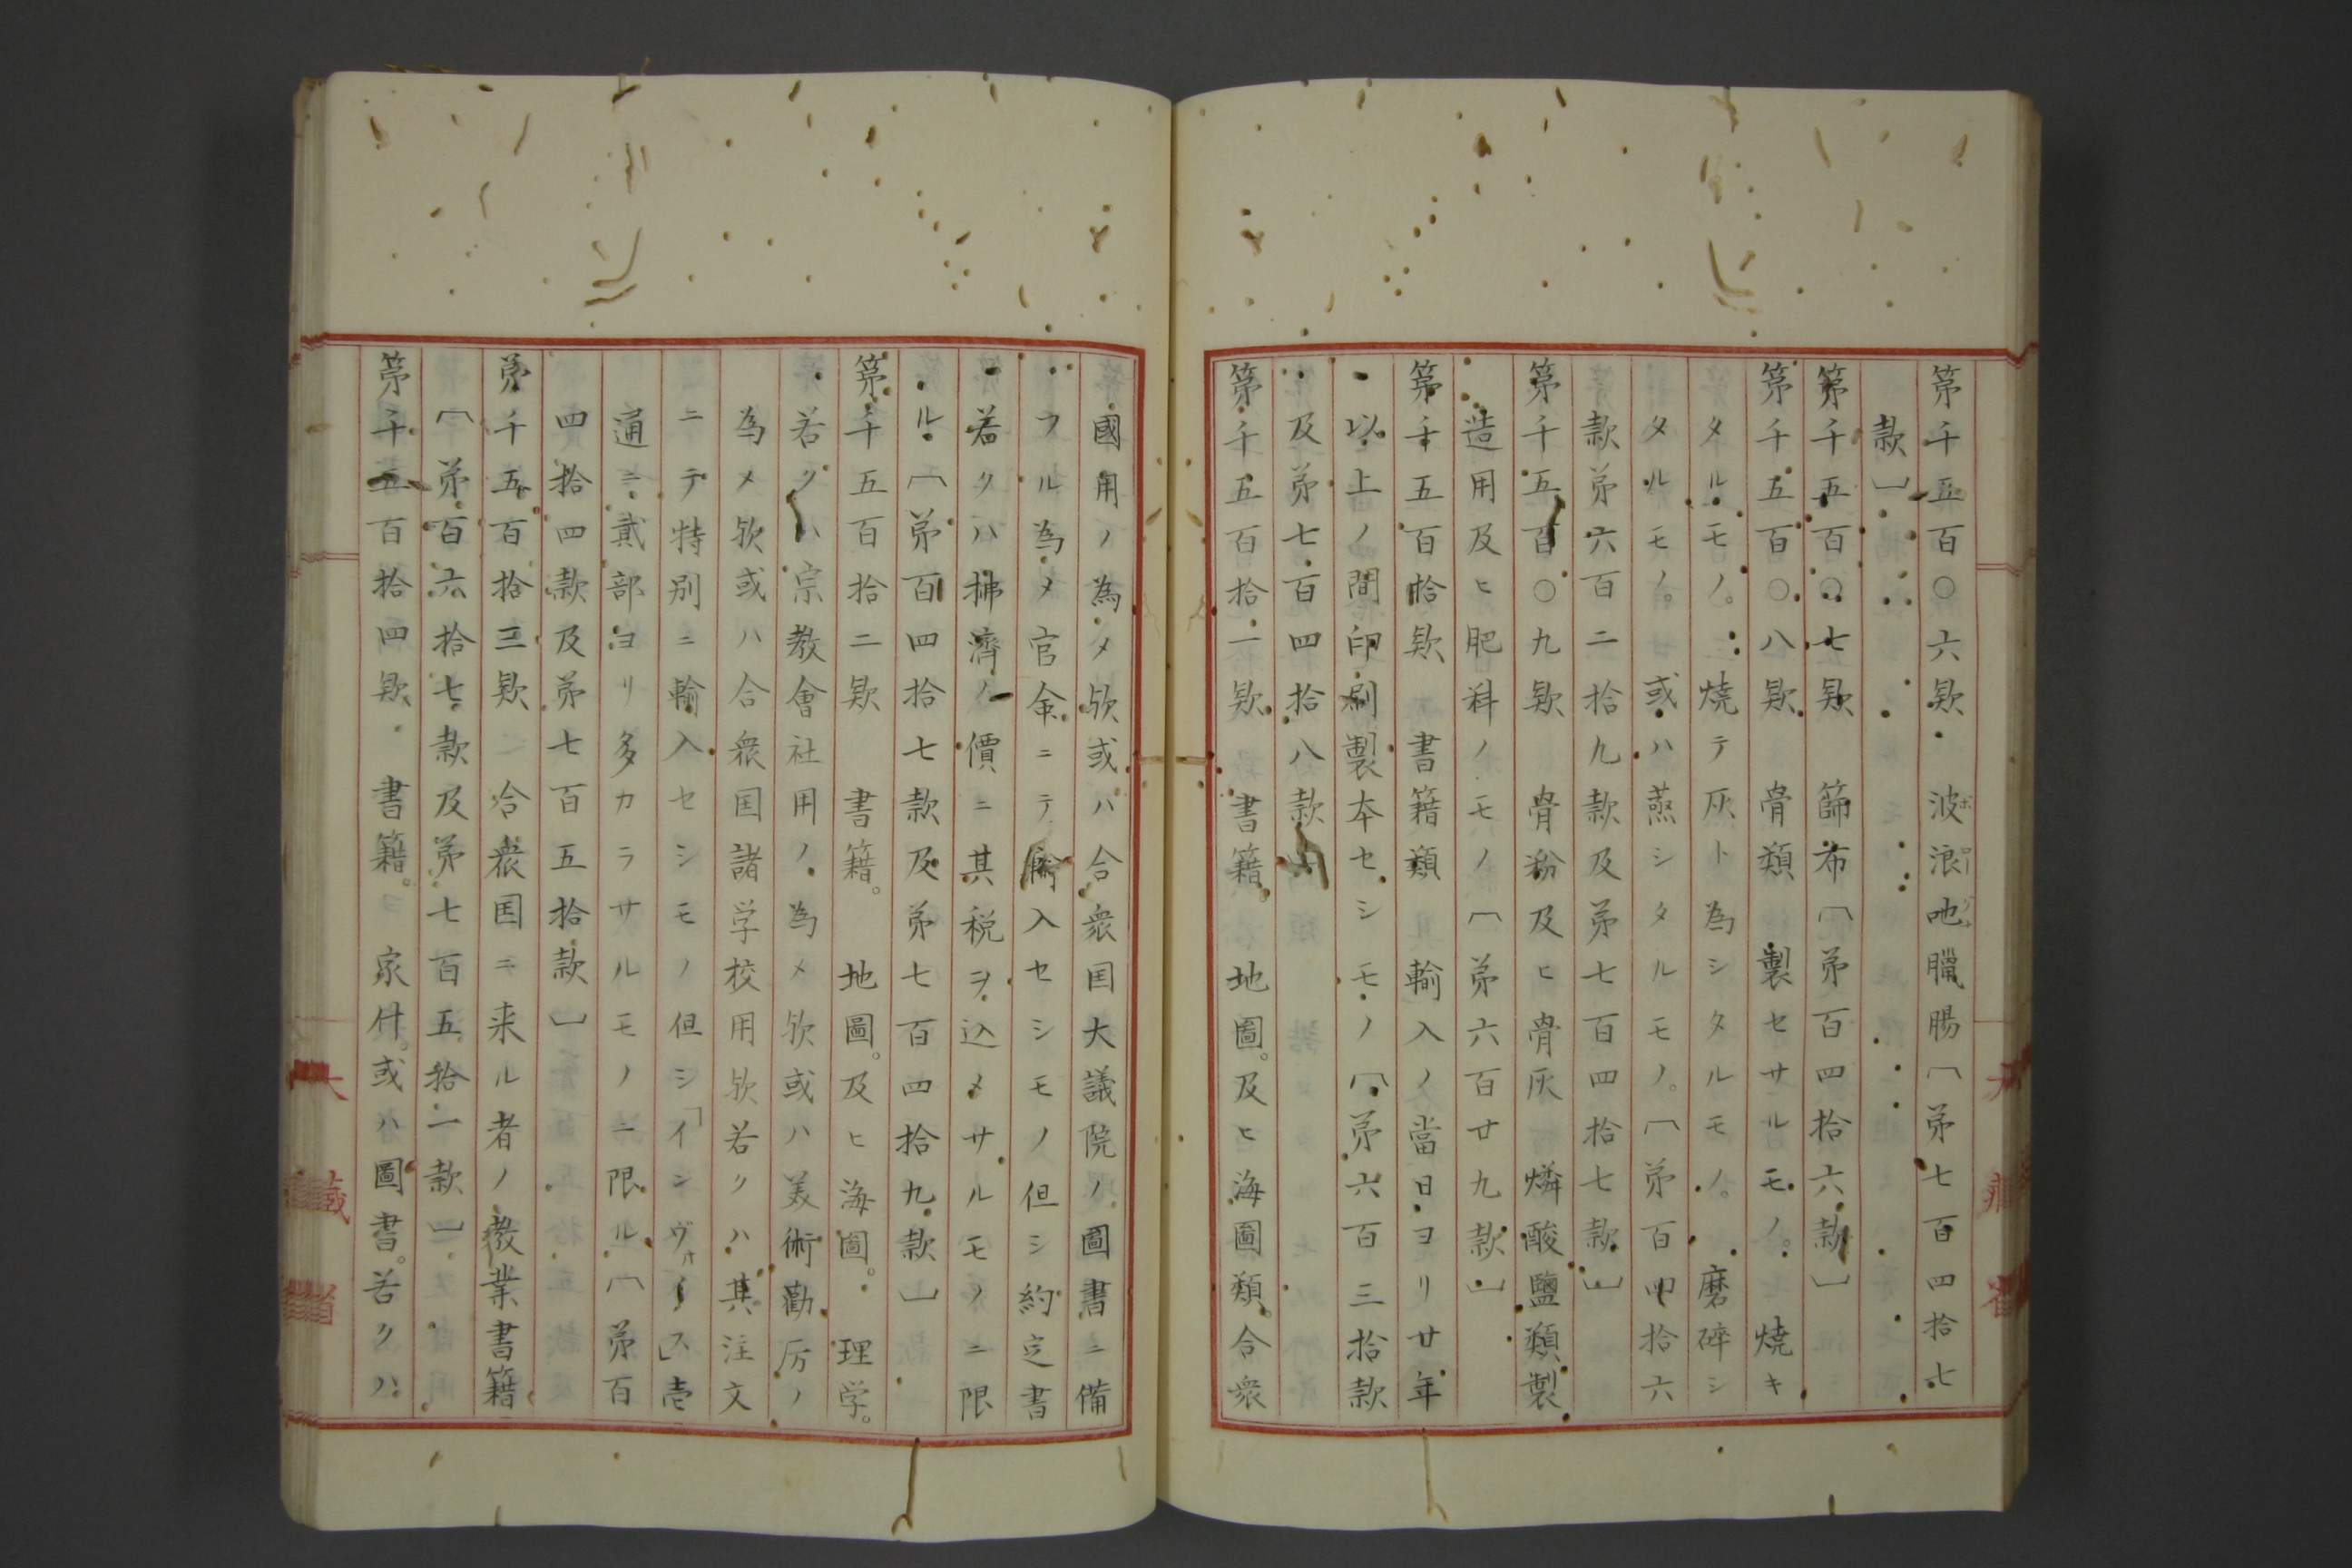 第千五百〇六欵 波浪吔臘腸〔第七百四拾七
款〕
第千五百〇七欵 篩布〔第百四拾六款〕
第千五百〇八欵 骨類 製セサルモノ。焼キ
タルモノ。焼テ灰ト為シタルモノ。磨碎シ
タルモノ。或ハ蒸シタルモノ。〔第百四拾六
款第六百二拾九款及第七百四拾七款〕
第千五百〇九欵 骨粉及ヒ骨灰 燐酸鹽類製
造用及ヒ肥料ノモノ〔第六百廿九款〕
第千五百拾欵 書籍類 輸入ノ當日ヨリ廿年
以上ノ間印刷製本セシモノ〔第六百三拾款
及第七百四拾八款〕
第千五百拾一欵 書籍。地圖。及ヒ海圖類。合衆
國用ノ為メ欤或ハ合衆国大議院ノ圖書ニ備
フル為メ官金ニテ輸入セシモノ但シ約定書
若クハ拂濟ノ價ニ其税ヲ込メサルモノニ限
ル〔第百四拾七款及第七百四拾九款〕
第千五百拾二欵 書籍。地圖。及ヒ海圖。理学。
若クハ宗教會社用ノ為メ欤或ハ美術勸厉ノ
為メ欤或ハ合衆国諸学校用欤若クハ其注文
ニテ特別ニ輸入セシモノ但シ「インヴォイス」壱
通ニ貳部ヨリ多カラサルモノニ限ル〔第百
四拾四款及第七百五拾款〕
第千五百拾三欵 合衆国ニ来ル者ノ教業書籍
〔第百六拾七款及第七百五拾一款〕
第千五百拾四欵 書籍。家什。或ハ圖書。若クハ